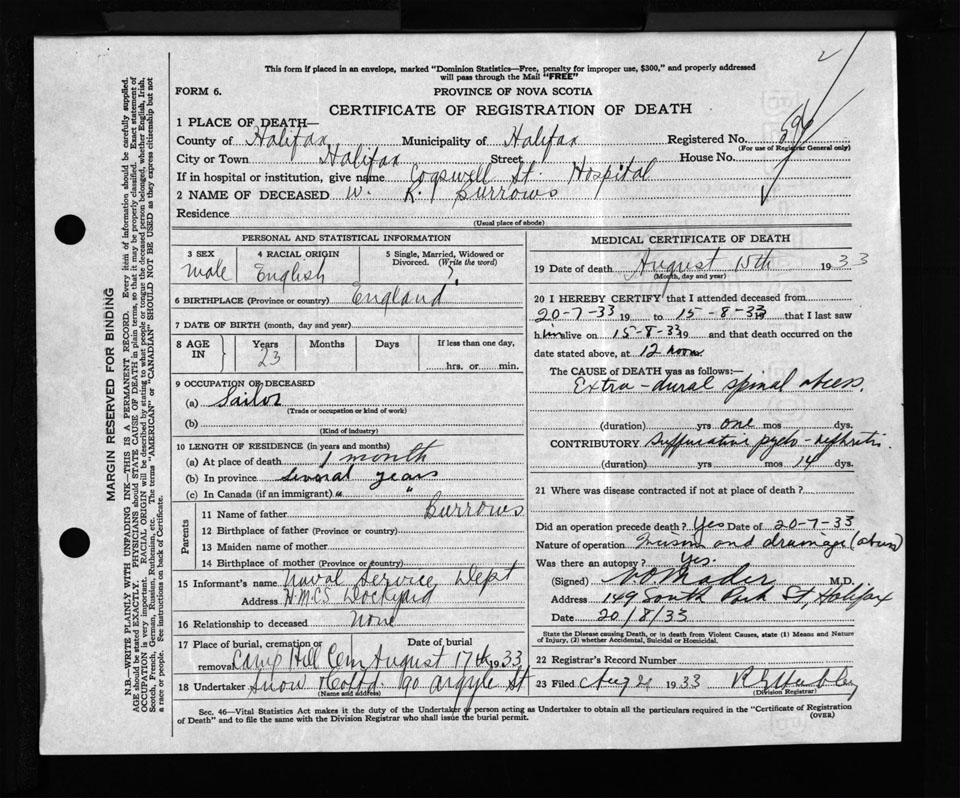 This form if placed in an envelope, marked "Dominion Statistics—Free, penalty for improper use, $300," and properly addressed
will pass through the Mail "FREE"
FORM 6.
PROVINCE OF NOVA SCOTIA
CERTIFICATE OF REGISTRATION OF DEATH
1 PLACE OF DEATH—
County of Halifax Municipality of Halifax Registered No.
(For use of Registrar General only)
City or Town Halifax Street House No.
If in hospital or institution, give name Cogswell St. Hospital
2 NAME OF DECEASED W. R. Burrows
Residence
(Usual place of abode)
PERSONAL AND STATISTICAL INFORMATION
3 SEX 4 RACIAL ORIGIN 5 Single, Married, Widowed or
Divorced. (Write the word)
Male English ?
6 BIRTHPLACE (Province or country) England
7 DATE OF BIRTH (month, day and year)
8 AGE IN Years Months Days If less than one day,
23 hrs. or min.
9 OCCUPATION OF DECEASED
(a) Sailor
(Trade or occupation or kind of work)
(b)
(Kind of industry)
10 LENGTH OF RESIDENCE (in years and months)
(a) At place of death 1 month
(b) In province Several years
(c) In Canada (if an immigrant) " "
Parents
11 Name of father Burrows
12 Birthplace of father (Province or country)
13 Maiden name of mother
14 Birthplace of mother (Province or country)
15 Informant's name Naval Service Dept
Address H.M.C.S. Dockyard
16 Relationship to deceased None
17 Place of burial, cremation or Date of burial
removal Camp Hill Cem August 17th 1933
18 Undertaker Snow & Co Ltd. 90 Argyle St
(Name and address)
MEDICAL CERTIFICATE OF DEATH
19 Date of death August 15th 1933
(Month, day and year)
20 I HEREBY CERTIFY that I attended deceased from
20-7-33 19 to 15-8-33 19 that I last saw
him alive on 15-8-33 19 and that death occurred on the
date stated above, at 12 noon
The CAUSE OF DEATH was as follows:—
Extra-dural spinal abcess.
(duration) yrs one mos dys.
CONTRIBUTORY Suppurative pyelo-nephritis
(duration) yrs mos 14 dys.
21 Where was disease contracted if not at place of death?
Did an operation precede death? Yes Date of 20-7-33
Nature of operation and drainage
Was there an autopsy? Yes.
(Signed) V.O. Mader M.D.
Address 149 South Park St, Halifax
Date 20/8/33
State the Disease causing Death, or in death from Violent Causes, state (1) Means and Nature
of Injury, (2) whether Accidental, Suicidal or Homicidal.
22 Registrar's Record Number
23 Filed Aug 1933
(Division Registrar)
Sec. 46—Vital Statistics Act makes it the duty of the Undertaker or person acting as Undertaker to obtain all the particulars required in the "Certificate of Registration
of Death" and to file the same with the Division Registrar who shall issue the burial permit.
(OVER)
MARGIN RESERVED FOR BINDING
N.B.—WRITE PLAINLY WITH UNFADING INK—THIS IS A PERMANENT RECORD. Every item of information should be carefully supplied.
AGE should be stated EXACTLY. PHYSICIANS should STATE CAUSE OF DEATH in plain terms, so that it may be properly classified. Exact statement of
OCCUPATION is very important. RACIAL ORIGIN will be described by stating to what people or tongue the deceased person belonged, whether English, Irish,
Scotch, French, German, Russian, Ruthenian, etc. The terms "AMERICAN" or "CANADIAN" SHOULD NOT BE USED as they express citizenship but not
a race or people. See instructions on back of Certificate.